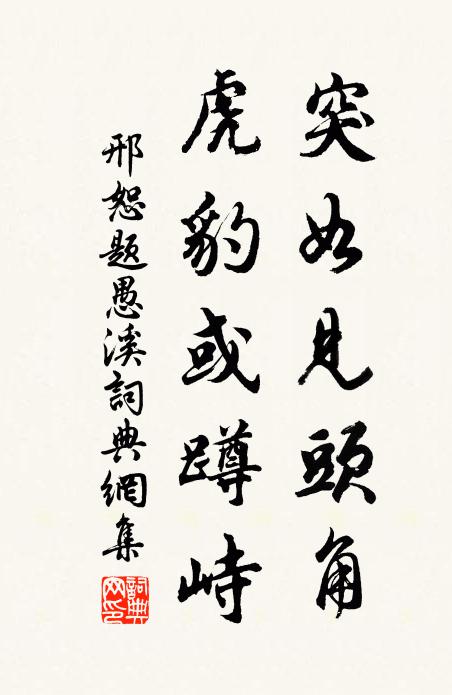 突如見頭角
虎豹或蹲峙
邢恕題愚溪詞典網集
詞典網印